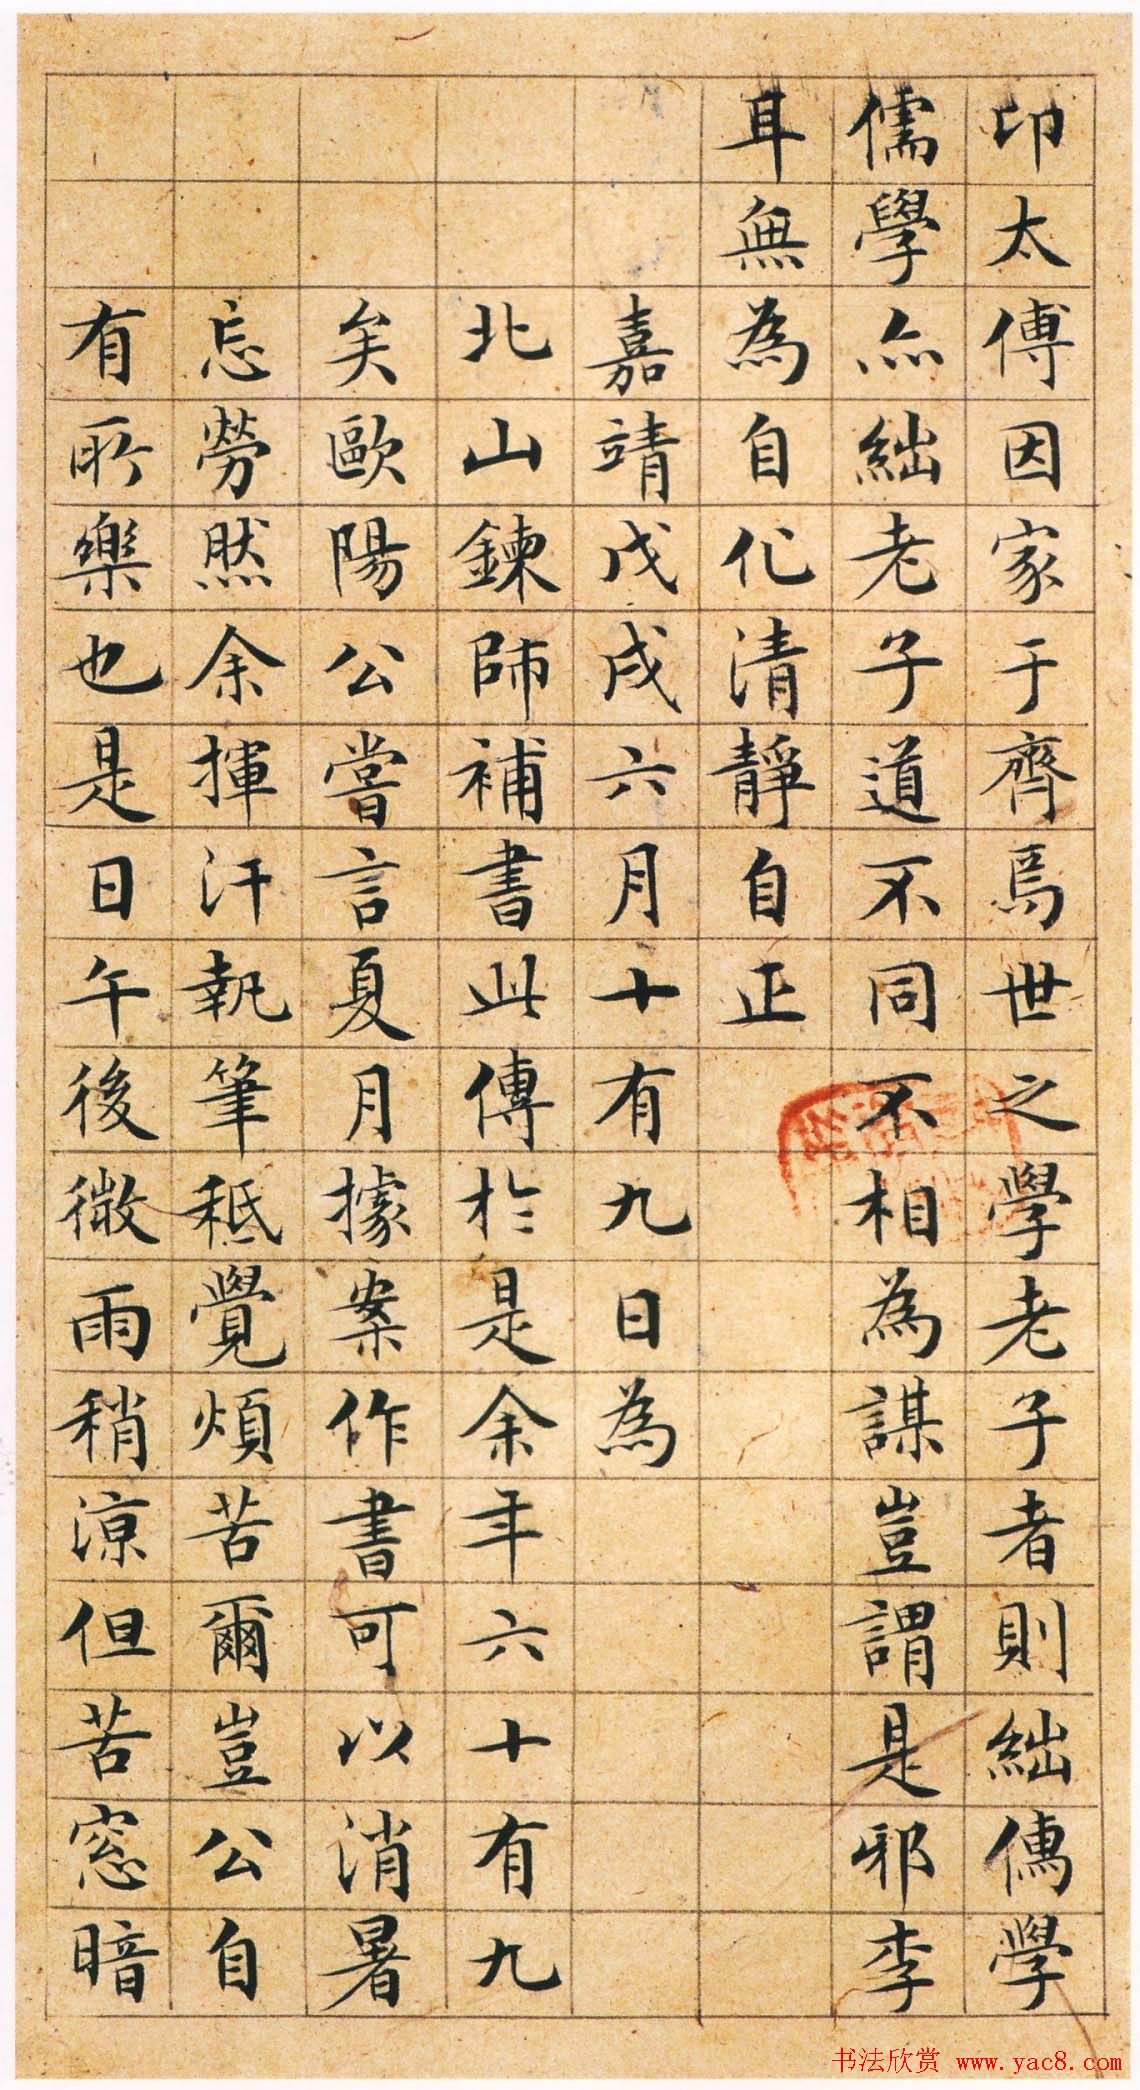 卬太傅因家于齊焉世之學老子者則絀儒學
儒學亦絀老子道不同不相為謀豈謂是邪李
耳無為自化清靜自正
嘉靖戊戌六月十有九日為
北山鍊師補書此傳於是余年六十有九
矣歐陽公嘗言夏月據案作書可以消暑
忘勞然余揮汗執筆秖覺煩苦爾豈公自
有所樂也是日午後微雨稍涼但苦窓暗
书法欣赏 www.yac8.com